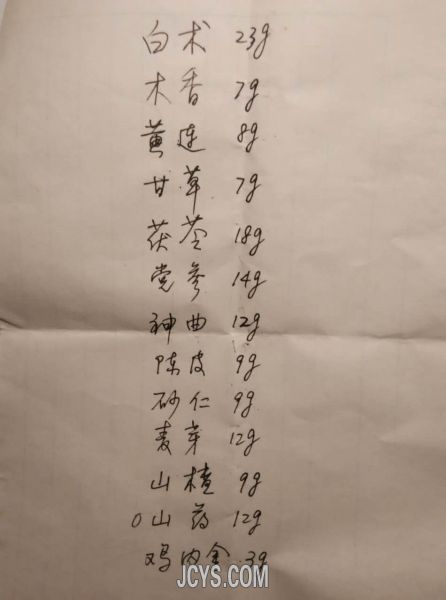 白术 23g
木香 7g
黄连 8g
甘草 7g
茯苓 18g
党参 14g
神曲 12g
陈皮 9g
砂仁 9g
麦芽 12g
山楂 9g
O山药 12g
鸡内金 3g
JCYS.COM